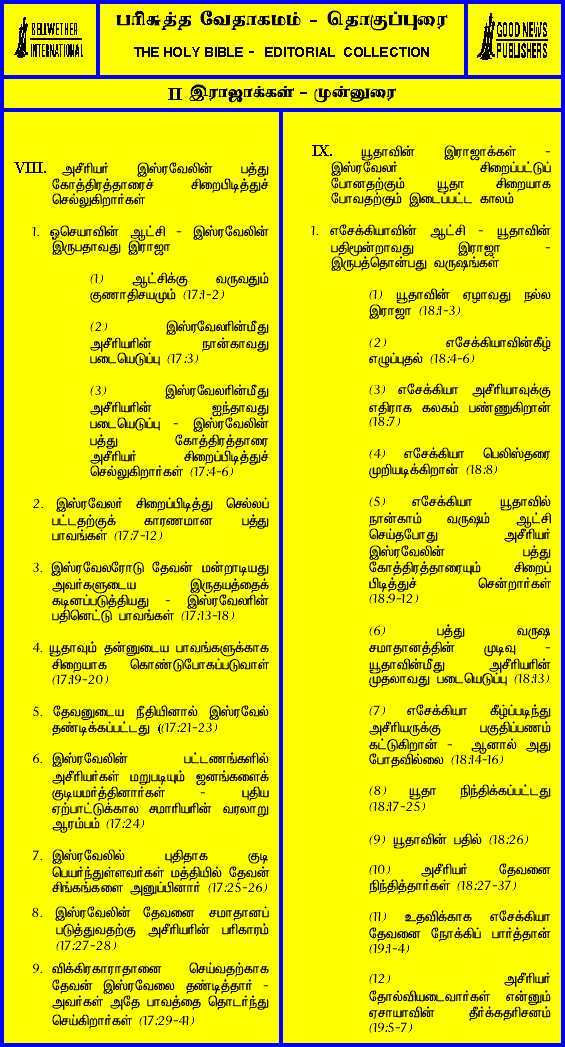 BELLWETHER
INTERNATIONAL
பரிசுத்த வேதாகமம் - தொகுப்புரை
THE HOLY BIBLE - EDITORIAL COLLECTION
GOOD NEWS
PUBLISHERS
II இராஜாக்கள் - முன்னுரை
VIII. அசீரியர் இஸ்ரவேலின் பத்து
கோத்திரத்தாரைச் சிறைபிடித்துச்
செல்லுகிறார்கள்
1. ஓசெயாவின் ஆட்சி - இஸ்ரவேலின்
இருபதாவது இராஜா
(1) ஆட்சிக்கு வருவதும்
குணாதிசயமும் (17:1-2)
(2) இஸ்ரவேலரின்மீது
அசீரியரின் நான்காவது
படையெடுப்பு (17:3)
(3) இஸ்ரவேலரின்மீது
அசீரியரின் ஐந்தாவது
படையெடுப்பு - இஸ்ரவேலின்
பத்து கோத்திரத்தாரை
அசீரியர் சிறைப்பிடித்துச்
செல்லுகிறார்கள் (17:4-6)
2. இஸ்ரவேலர் சிறைப்பிடித்து செல்லப்
பட்டதற்குக் காரணமான பத்து
பாவங்கள் (17:7-12)
3. இஸ்ரவேலரோடு தேவன் மன்றாடியது
அவர்களுடைய இருதயத்தைக்
கடினப்படுத்தியது - இஸ்ரவேலரின்
பதினெட்டு பாவங்கள் (17:13-18)
4. யூதாவும் தன்னுடைய பாவங்களுக்காக
சிறையாக கொண்டுபோகப்படுவாள்
(17:19-20)
5. தேவனுடைய நீதியினால் இஸ்ரவேல்
தண்டிக்கப்பட்டது ((17:21-23)
6. இஸ்ரவேலின் பட்டணங்களில்
அசீரியர்கள் மறுபடியும் ஜனங்களைக்
குடியமர்த்தினார்கள் - புதிய
ஏற்பாட்டுக்கால சமாரியரின் வரலாறு
ஆரம்பம் (17:24)
7. இஸ்ரவேலில் புதிதாக குடி
பெயர்ந்துள்ளவர்கள் மத்தியில் தேவன்
சிங்கங்களை அனுப்பினார் (17:25-26)
8. இஸ்ரவேலின் தேவனை சமாதானப்
படுத்துவதற்கு அசீரியரின் பரிகாரம்
(17:27-28)
9. விக்கிரகாராதானை செய்வதற்காக
தேவன் இஸ்ரவேலை தண்டித்தார் -
அவர்கள் அதே பாவத்தை தொடர்ந்து
செய்கிறார்கள் (17:29-41)
IX. யூதாவின் இராஜாக்கள் -
இஸ்ரவேலர் சிறைப்பட்டுப்
போனதற்கும் யூதா சிறையாக
போவதற்கும் இடைப்பட்ட காலம்
1. எசேக்கியாவின் ஆட்சி - யூதாவின்
பதிமூன்றாவது இராஜா -
இருபத்தொன்பது வருஷங்கள்
(1) யூதாவின் ஏழாவது நல்ல
இராஜா (18:1-3)
(2) எசேக்கியாவின்கீழ்
எழுப்புதல் (18:4-6)
(3) எசேக்கியா அசீரியாவுக்கு
எதிராக கலகம் பண்ணுகிறான்
(18:7)
(4) எசேக்கியா பெலிஸ்தரை
முறியடிக்கிறான் (18:8)
(5) எசேக்கியா யூதாவில்
நான்காம் வருஷம் ஆட்சி
செய்தபோது அசீரியர்
இஸ்ரவேலின் பத்து
கோத்திரத்தாரையும் சிறைப்
பிடித்துச் சென்றார்கள்
(18:9-12)
(6) பத்து வருஷ
சமாதானத்தின் முடிவு -
யூதாவின்மீது அசீரியரின்
முதலாவது படையெடுப்பு (18:13)
(7) எசேக்கியா கீழ்ப்படிந்து
அசீரியருக்கு பகுதிப்பணம்
கட்டுகிறான் - ஆனால் அது
போதவில்லை (18:14-16)
(8) யூதா நிந்திக்கப்பட்டது
(18:17-25)
(9) யூதாவின் பதில் (18:26)
(10) அசீரியர் தேவனை
நிந்தித்தார்கள் (18:27-37)
(11) உதவிக்காக எசேக்கியா
தேவனை நோக்கிப் பார்த்தான்
(19:1-4)
(12) அசீரியர்
தோல்வியடைவார்கள் என்னும்
ஏசாயாவின் தீர்க்கதரிசனம்
(19:5-7)